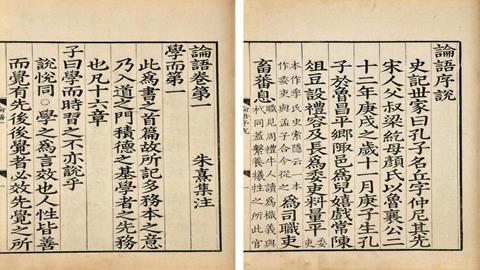 論語序說
史記世家曰孔子名丘字仲尼其先
宋人父叔梁紇母顏氏以魯襄公二
十二年庚戌之歲十一月庚子生孔
子於魯昌平鄉陬邑為兒嬉戲常陳
俎豆設禮容及長為委吏料量平委吏
本作季氏史索隱云一本作委吏與孟子合今從之為司職吏
畜蕃息職見周禮牛人讀為樴義與杙同蓋繫養犧牲之所此官
論語卷第一
學而第一 朱熹集注
此為書之首篇故所記多務本之意
乃入道之門積德之基學者之先務
也凡十六章
子曰學而時習之不亦說乎
說悅同○學之為言效也人性皆善
而覺有先後後覺者必效先覺之所